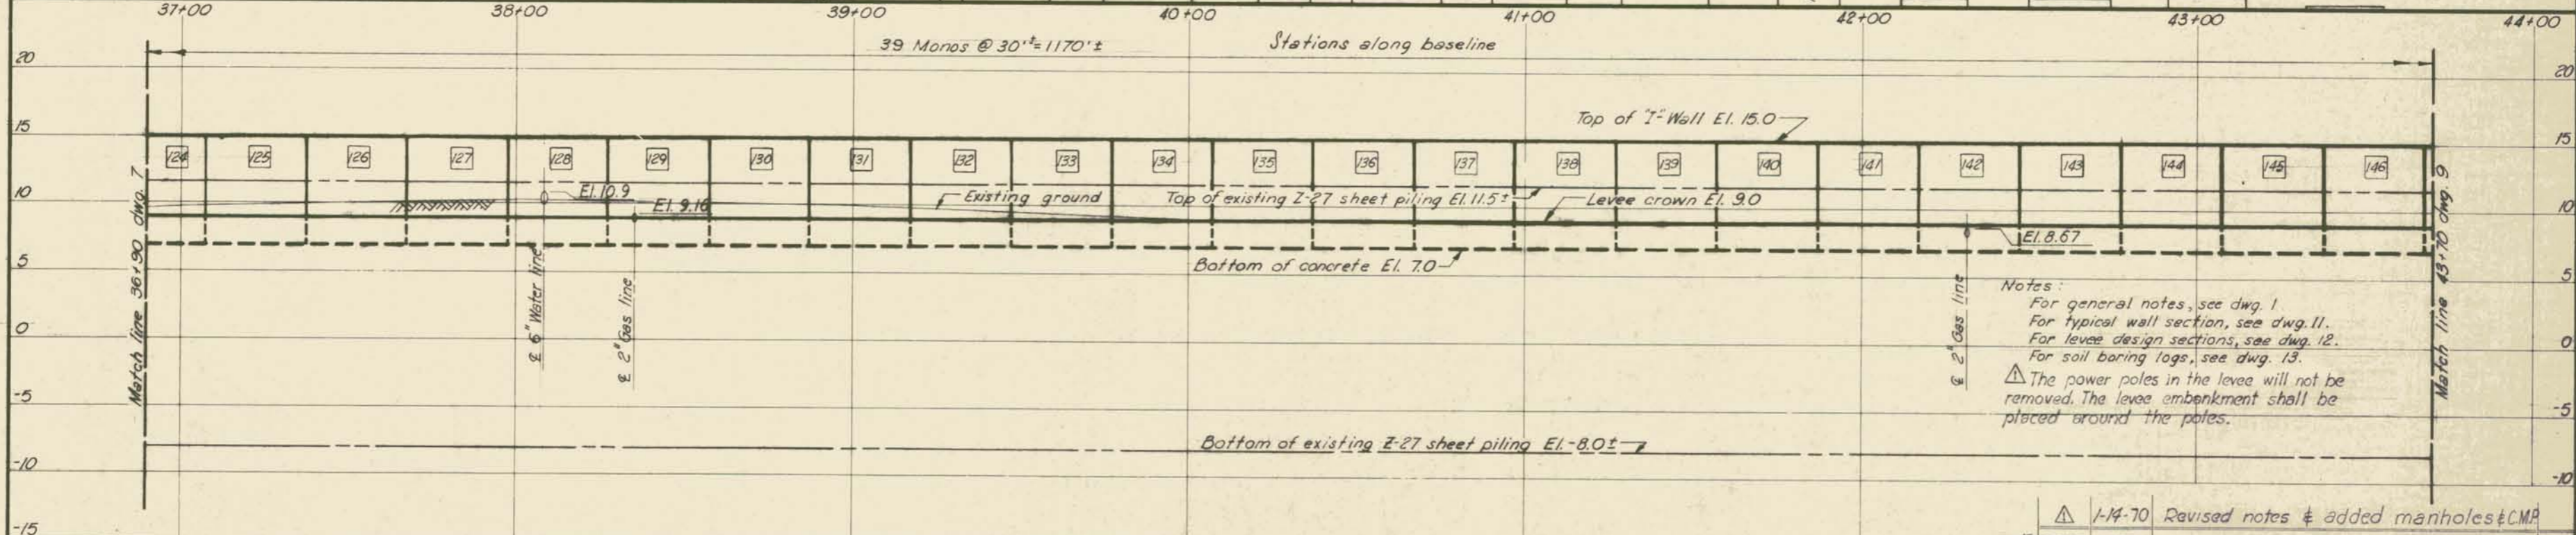 37+00 38+00 39+00 40+00 41+00 42+00 43+00 44+00
39 Monos @ 30'±=1170'±
Stations along baseline
20 20
Top of "I"-Wall El. 15.0
15 15
124 125 126 127 128 129 130 131 132 133 134 135 136 137 138 139 140 141 142 143 144 145 146
El. 10.9
Existing ground
Top of existing Z-27 sheet piling El. 11.5±
Levee crown El. 9.0
10 10
El. 9.16
El. 8.67
Bottom of concrete El. 7.0
5 5
Match line 36+90 dwg. 7
℄ 6" Water line
℄ 2" Gas line
℄ 2" Gas line
Match line 43+70 dwg. 9
Notes:
For general notes, see dwg. 1
For typical wall section, see dwg. 11.
For levee design sections, see dwg. 12.
For soil boring logs, see dwg. 13.
⚠ The power poles in the levee will not be
removed. The levee embankment shall be
placed around the poles.
0 0
-5 -5
Bottom of existing Z-27 sheet piling El. -8.0±
-10 -10
-15
1-14-70 Revised notes & added manholes & C.M.P.